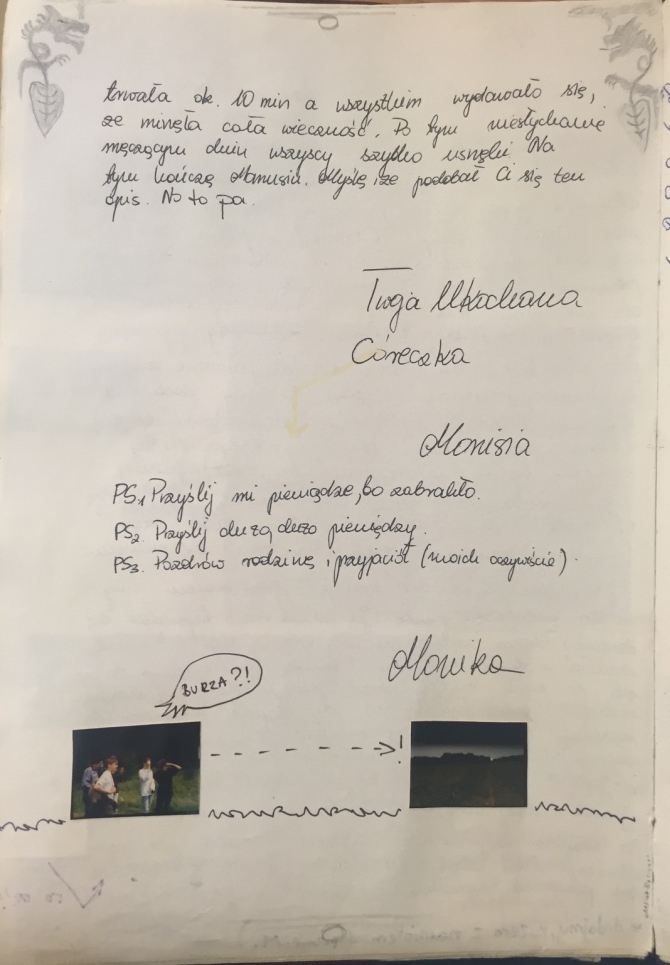 trwała ok. 10 min a wszystkim wydawało się,
że minęła cała wieczność. Po tym niesłychanie
męczącym dniu wszyscy szybko usnęli. Na
tym kończę Mamusiu. Myślę że podobał Ci się ten
opis. No to pa.
Twoja Ukochana
Córeczka
Monisia
PS1 Przyślij mi pieniądze, bo zabrakło.
PS2 Przyślij dużo, dużo pieniędzy.
PS3. Pozdrów rodzinę i przyjaciół (moich oczywiście).
Monika
BURZA?!
!